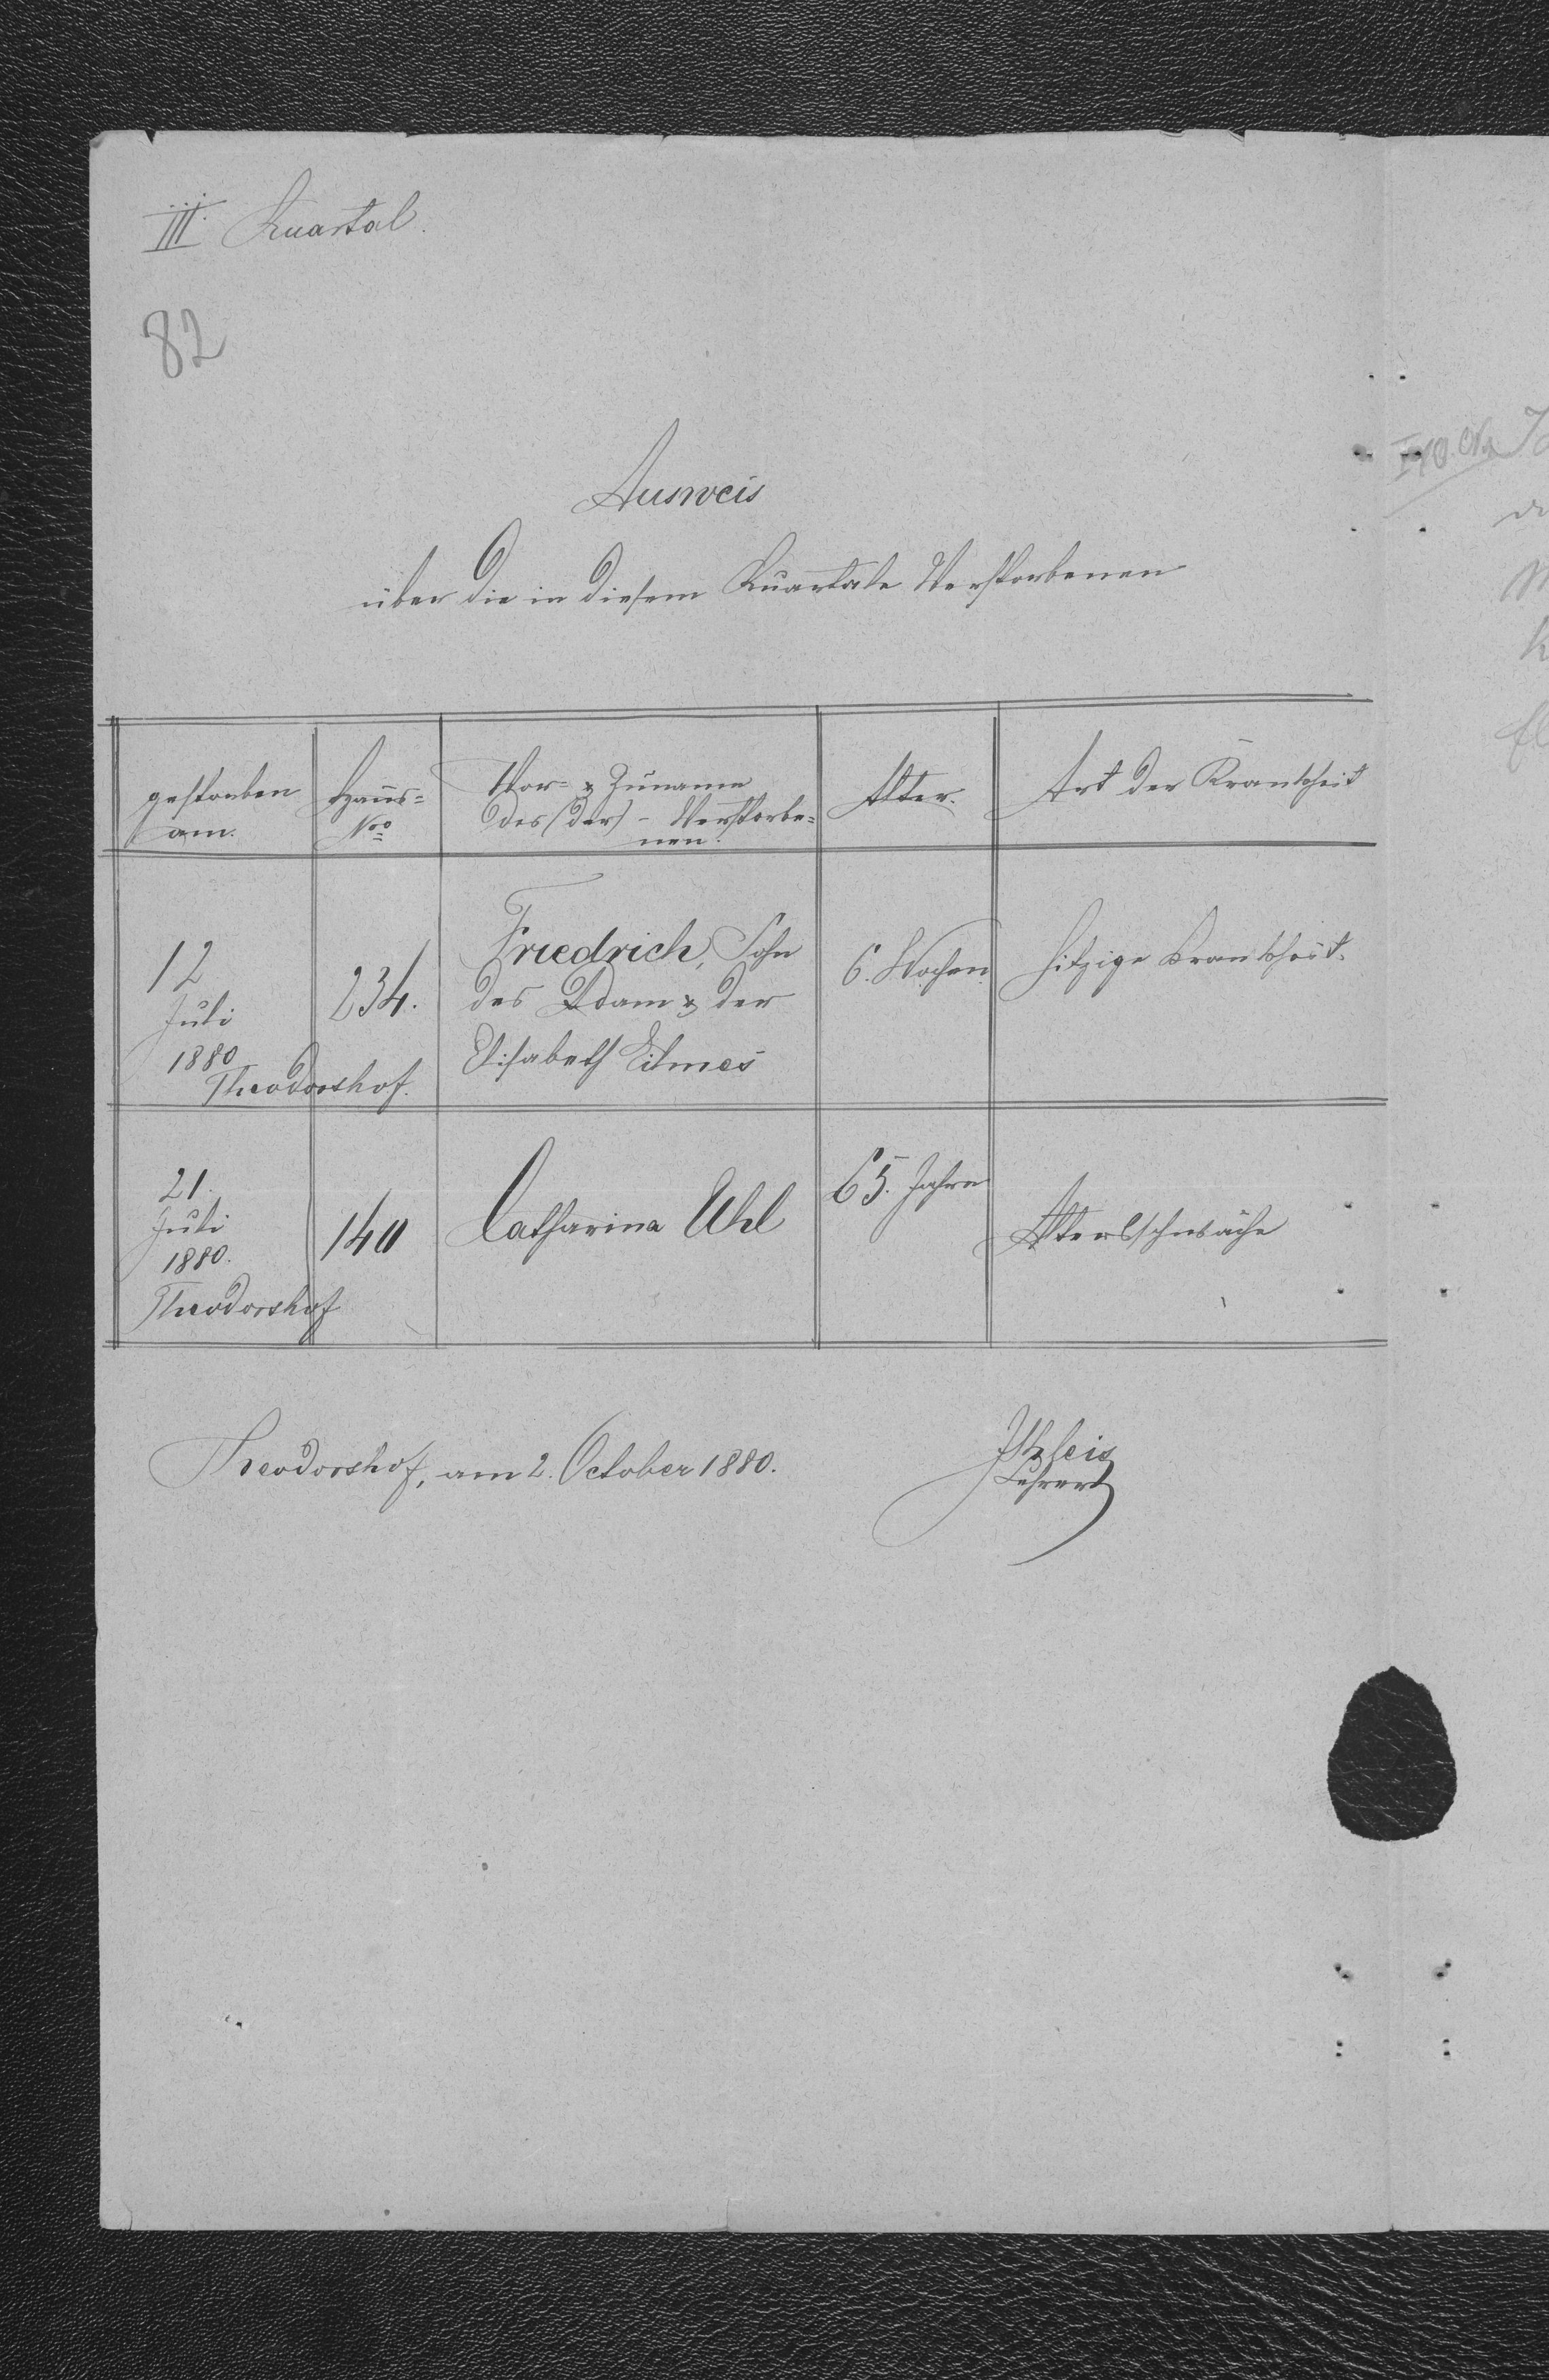 III. Quartal.
82
Ausweis
über die in diesem Quartale Verstorbenen
gestorben am. | Haus= Nro | Vor= & Zuname des (der) - Verstorbe= nen. | Alter. | Art der Krankheit
12 Juli 1880 Theodorshof. | 234. | Friedrich, Sohn des Adam & der Elisabeth | 6. Wochen | hitzige Krankheit.
21. Juli 1880. Theodorshof | 140 | Catharina Uhl | 65. Jahre | Altersschwäche
Theodorshof, am 2. October 1880.
Lehrer